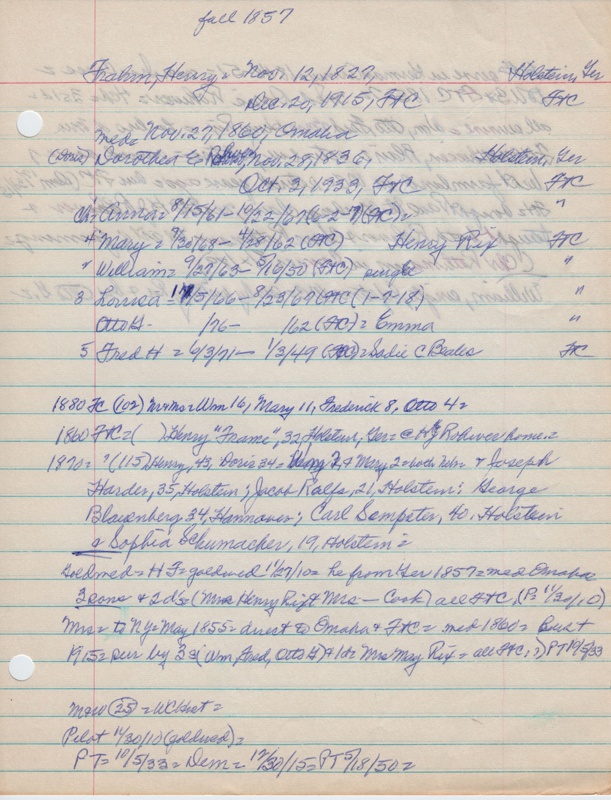 fall 1857
Frahm, Henry = Nov. 12, 1827, Holstein, Ger
Dec. 20, 1915, FtC FtC
med = Nov. 27, 1860, Omaha
(Doris) Dorothea E. Nov. 28, 1836, Holstein, Ger
Oct. 3, 1933, FtC FtC
Ch = Anna = 8/15/61 - 10/22/67 (6-2-7) (FtC) = "
4 Mary = 9/30/68 - 4/28/62 (FtC) Henry Rix FtC
" William = 9/27/63 - 5/16/50 (FtC) single "
3 = /5/66 - 8/23/67 (FtC (1-7-18) "
Otto H- /76- /62 (FtC) = Emma "
5 Fred H = 6/3/71 - 1/3/49 (FtC) = Sadie C Beales FtC
1880 FC (102) Mr + Mrs = Wm 16, Mary 11, Frederick 8, Otto 4 =
1860 FtC = ( ) Henry "Frame", 32, Holstein, Ger = @ Rohwer home =
1870 = " (115) Henry, 43, Doris 34 = 7, + Mary, 2 = both Nebr + Joseph
Harder, 35, Holstein; Jacob Ralfs, 21, Holstein; George
Blazenberg 34, Hannover; Carl Sempeter, 40, Holstein
+ Sophia Schumacher, 19, Holstein =
Goldwed = HF = goldwed 11/27/10 = he from Ger 1857 = med Omaha =
3 sons + 2 ds (Mrs Henry Rix + Mrs - Cook) all FtC, (P = 11/30/10)
Mrs = to Ny = May 1855 = direct to Omaha + FtC = med 1860 =
1915 = sur by 3 s (Wm, Fred, Otto H) + 1 d = Mrs May Rix = all FtC, ?) PT 10/5/33
M&W (25) = WC Hist =
Pilot 11/30/10 (goldwed) =
PT = 10/5/33 = Dem = 12/30/15 = PT 5/18/50 =